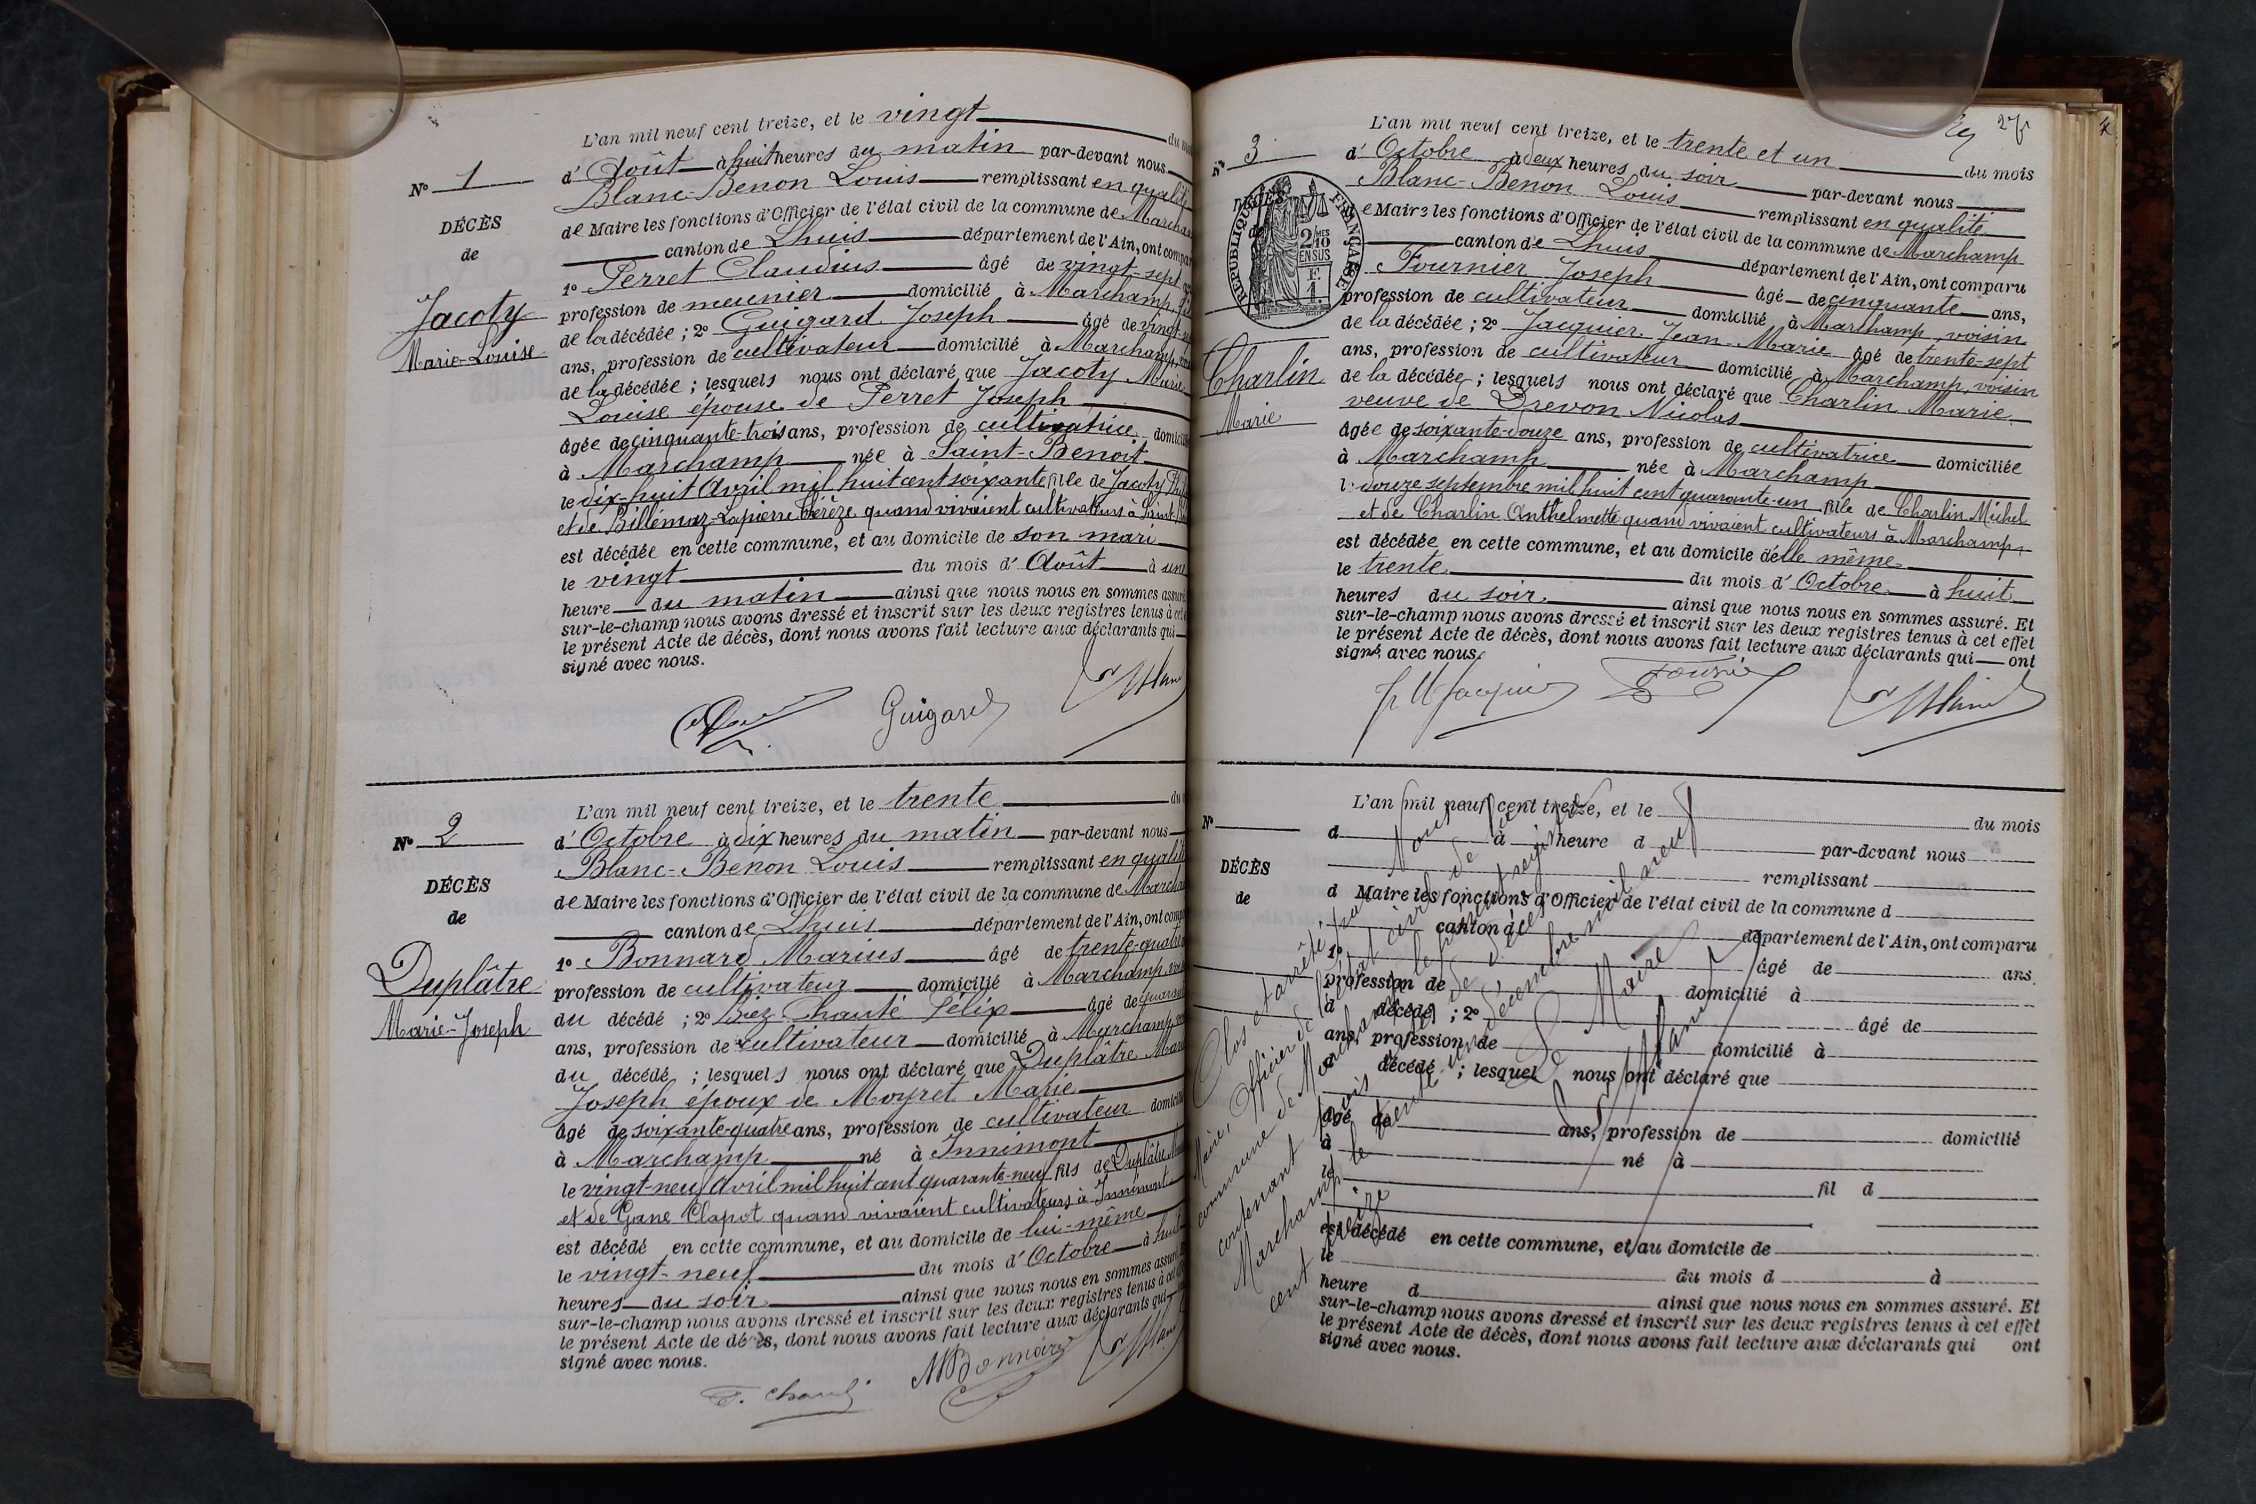 L'an mil neuf cent treize, et le vingt du
N° 1
d'Août à huit heures du matin par-devant nous
Blanc-Benon Louis remplissant en qualité
DÉCÈS
de Maire les fonctions d'Officier de l'état civil de la commune de
de
canton de Lhuis département de l'Ain, ont
1° Perret Claudius âgé de vingt-sept
Jacoty
profession de meunier domicilié à Marchamp
de la décédée ; 2° Guigard Joseph âgé de
Marie-Louise
ans, profession de cultivateur domicilié à Marchamp
de la décédée ; lesquels nous ont déclaré que Jacoty Marie
Louise épouse de Perret Joseph
âgée de cinquante-trois ans, profession de cultivatrice
à Marchamp née à Saint-Benoit
le dix-huit Avril mil huit cent soixante fille de Jacoty
et de Billémaz-Lapierre Térèze quand vivaient cultivateurs à Saint
est décédée en cette commune, et au domicile de son mari
le vingt du mois d'Août à une
heure du matin ainsi que nous nous en sommes assuré
sur-le-champ nous avons dressé et inscrit sur les deux registres tenus à
le présent Acte de décès, dont nous avons fait lecture aux déclarants qui
signé avec nous.
Guigard
L'an mil neuf cent treize, et le trente
N° 2
d'Octobre à dix heures du matin par-devant nous
Blanc-Benon Louis remplissant en qualité
DÉCÈS
de Maire les fonctions d'Officier de l'état civil de la commune de
de
canton de Lhuis département de l'Ain, ont
1° Bonnard Marius âgé de trente-quatre
Duplâtre
profession de cultivateur domicilié à Marchamp
du décédé ; 2° Biez Chanté Félix âgé de
Marie-Joseph
ans, profession de cultivateur domicilié à Marchamp
du décédé ; lesquels nous ont déclaré que Duplâtre
Joseph époux de Moyret Marie
âgé de soixante-quatre ans, profession de cultivateur
à Marchamp né à Innimont
le vingt-neuf Avril mil huit cent quarante-neuf fils de Duplâtre
et de Gane Clapot quand vivaient cultivateurs à Innimont
est décédé en cette commune, et au domicile de lui-même
le vingt-neuf du mois d'Octobre à huit
heures du soir ainsi que nous nous en sommes
sur-le-champ nous avons dressé et inscrit sur les deux registres tenus à
le présent Acte de décès, dont nous avons fait lecture aux déclarants qui
signé avec nous.
F. Chanté
L'an mil neuf cent treize, et le trente et un du mois
N° 3
d'Octobre à deux heures du soir par-devant nous
Blanc-Benon Louis remplissant en qualité
DÉCÈS
de
RÉPUBLIQUE FRANÇAISE
2/10 EN SUS
de Maire les fonctions d'Officier de l'état civil de la commune de Marchamp
canton de Lhuis département de l'Ain, ont comparu
Fournier Joseph âgé de cinquante ans,
profession de cultivateur domicilié à Marchamp voisin
de la décédée ; 2° Jacquier Jean-Marie âgé de trente-sept
ans, profession de cultivateur domicilié à Marchamp, voisin
Charlin
de la décédée ; lesquels nous ont déclaré que Charlin Marie
veuve de Drevon Nicolas
Marie
âgée de soixante-douze ans, profession de cultivatrice domiciliée
à Marchamp née à Marchamp
douze septembre mil huit cent quarante-un fille de Charlin Michel
et de Charlin Anthelmette quand vivaient cultivateurs à Marchamp
est décédée en cette commune, et au domicile d'elle même
le trente du mois d'Octobre à huit
heures du soir. ainsi que nous nous en sommes assuré. Et
sur-le-champ nous avons dressé et inscrit sur les deux registres tenus à cet effet
le présent Acte de décès, dont nous avons fait lecture aux déclarants qui ont
signé avec nous.
J M Jacquier
L'an mil neuf cent treize, et le du mois
N°
d à heure d par-devant nous
remplissant
DÉCÈS
d Maire les fonctions d'Officier de l'état civil de la commune d
de
canton de département de l'Ain, ont comparu
1° âgé de ans
profession de domicilié à
d décédé ; 2° âgé de
ans, profession de domicilié à
d décédé ; lesquel nous ont déclaré que
âgé de ans, profession de domicilié
à né à
le fil d
est décédé en cette commune, et au domicile de
le du mois d à
heure d ainsi que nous nous en sommes assuré. Et
sur-le-champ nous avons dressé et inscrit sur les deux registres tenus à cet effet
le présent Acte de décès, dont nous avons fait lecture aux déclarants qui ont
signé avec nous.
Clos et arrêté par Nous
Maire, Officier de l'état civil de la
commune de Marchamp le présent registre
contenant trois actes de décès
Marchamp le trente un décembre mil neuf
cent treize
Le Maire